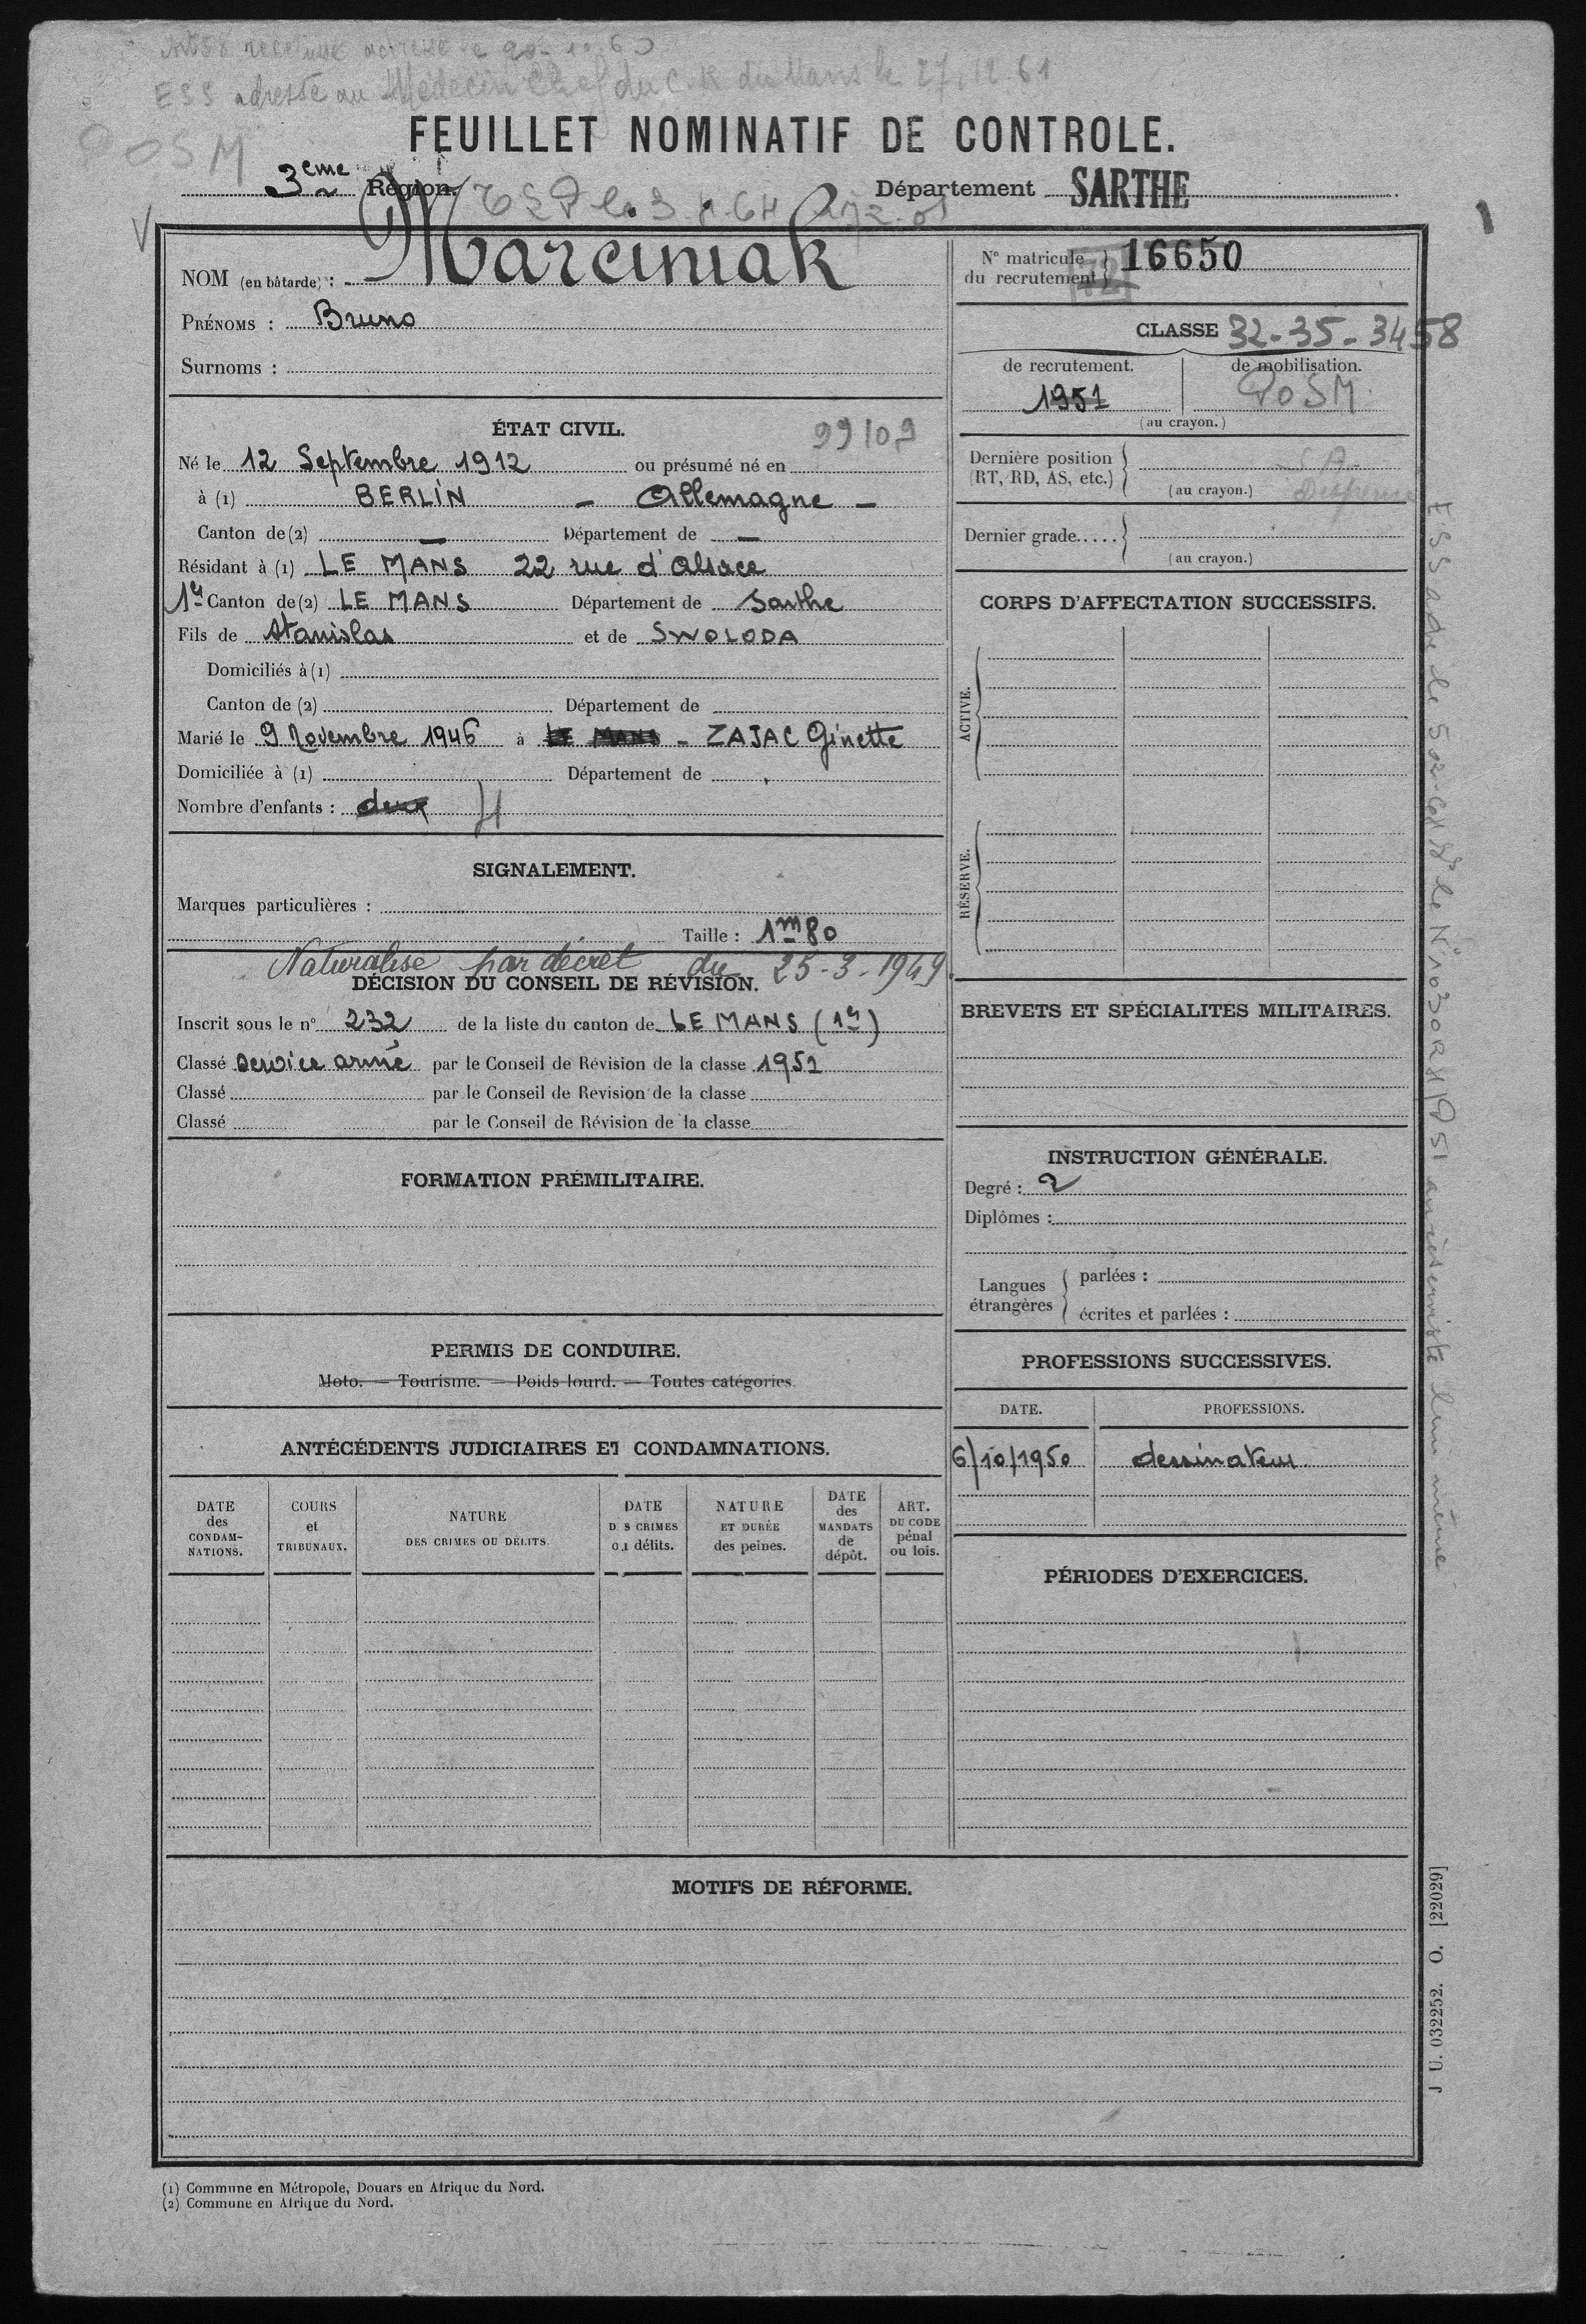 ESS adressé au Médecin Chef du C.R du Mans le 27.12.61
POSM
FEUILLET NOMINATIF DE CONTROLE.
3eme Région. Département SARTHE
NOM (en bâtarde) : Marciniak
PRÉNOMS : Bruno
Surnoms :
ÉTAT CIVIL. 99109
Né le 12 Septembre 1912 ou présumé né en
à (1) BERLIN - Allemagne -
Canton de (2) — Département de —
Résidant à (1) LE MANS 22 rue d'Alsace
1er Canton de (2) LE MANS Département de Sarthe
Fils de Stanislas et de SWOLODA
Domiciliés à (1)
Canton de (2) Département de
Marié le 9 Novembre 1946 à LE MANS - ZAJAC Ginette
Domiciliée à (1) Département de
Nombre d'enfants : deux 4
SIGNALEMENT.
Marques particulières :
Taille : 1m80
Naturalisé par décret du 25-3-1949.
DÉCISION DU CONSEIL DE RÉVISION.
Inscrit sous le n° 232 de la liste du canton de LE MANS (1er)
Classé service armé par le Conseil de Révision de la classe 1951
Classé par le Conseil de Révision de la classe
Classé par le Conseil de Révision de la classe
FORMATION PRÉMILITAIRE.
PERMIS DE CONDUIRE.
Moto. — Tourisme. — Poids lourd. — Toutes catégories.
ANTÉCÉDENTS JUDICIAIRES ET CONDAMNATIONS.
DATE des CONDAM-NATIONS.
COURS et TRIBUNAUX.
NATURE DES CRIMES OU DÉLITS.
DATE DES CRIMES ou délits.
NATURE ET DURÉE des peines.
DATE des MANDATS de dépôt.
ART. DU CODE pénal ou lois.
N° matricule du recrutement 72 16650
CLASSE 32-35-34 58
de recrutement. de mobilisation.
1951 POSM
(au crayon.)
Dernière position SA
(RT, RD, AS, etc.) (au crayon.)
Dernier grade.....
(au crayon.)
CORPS D'AFFECTATION SUCCESSIFS.
ACTIVE.
RÉSERVE.
BREVETS ET SPÉCIALITÉS MILITAIRES.
INSTRUCTION GÉNÉRALE.
Degré : 2
Diplômes :
Langues étrangères
parlées :
écrites et parlées :
PROFESSIONS SUCCESSIVES.
DATE. PROFESSIONS.
6/10/1950 dessinateur
PÉRIODES D'EXERCICES.
MOTIFS DE RÉFORME.
J U. 032252. O. [22029]
(1) Commune en Métropole, Douars en Afrique du Nord.
(2) Commune en Afrique du Nord.